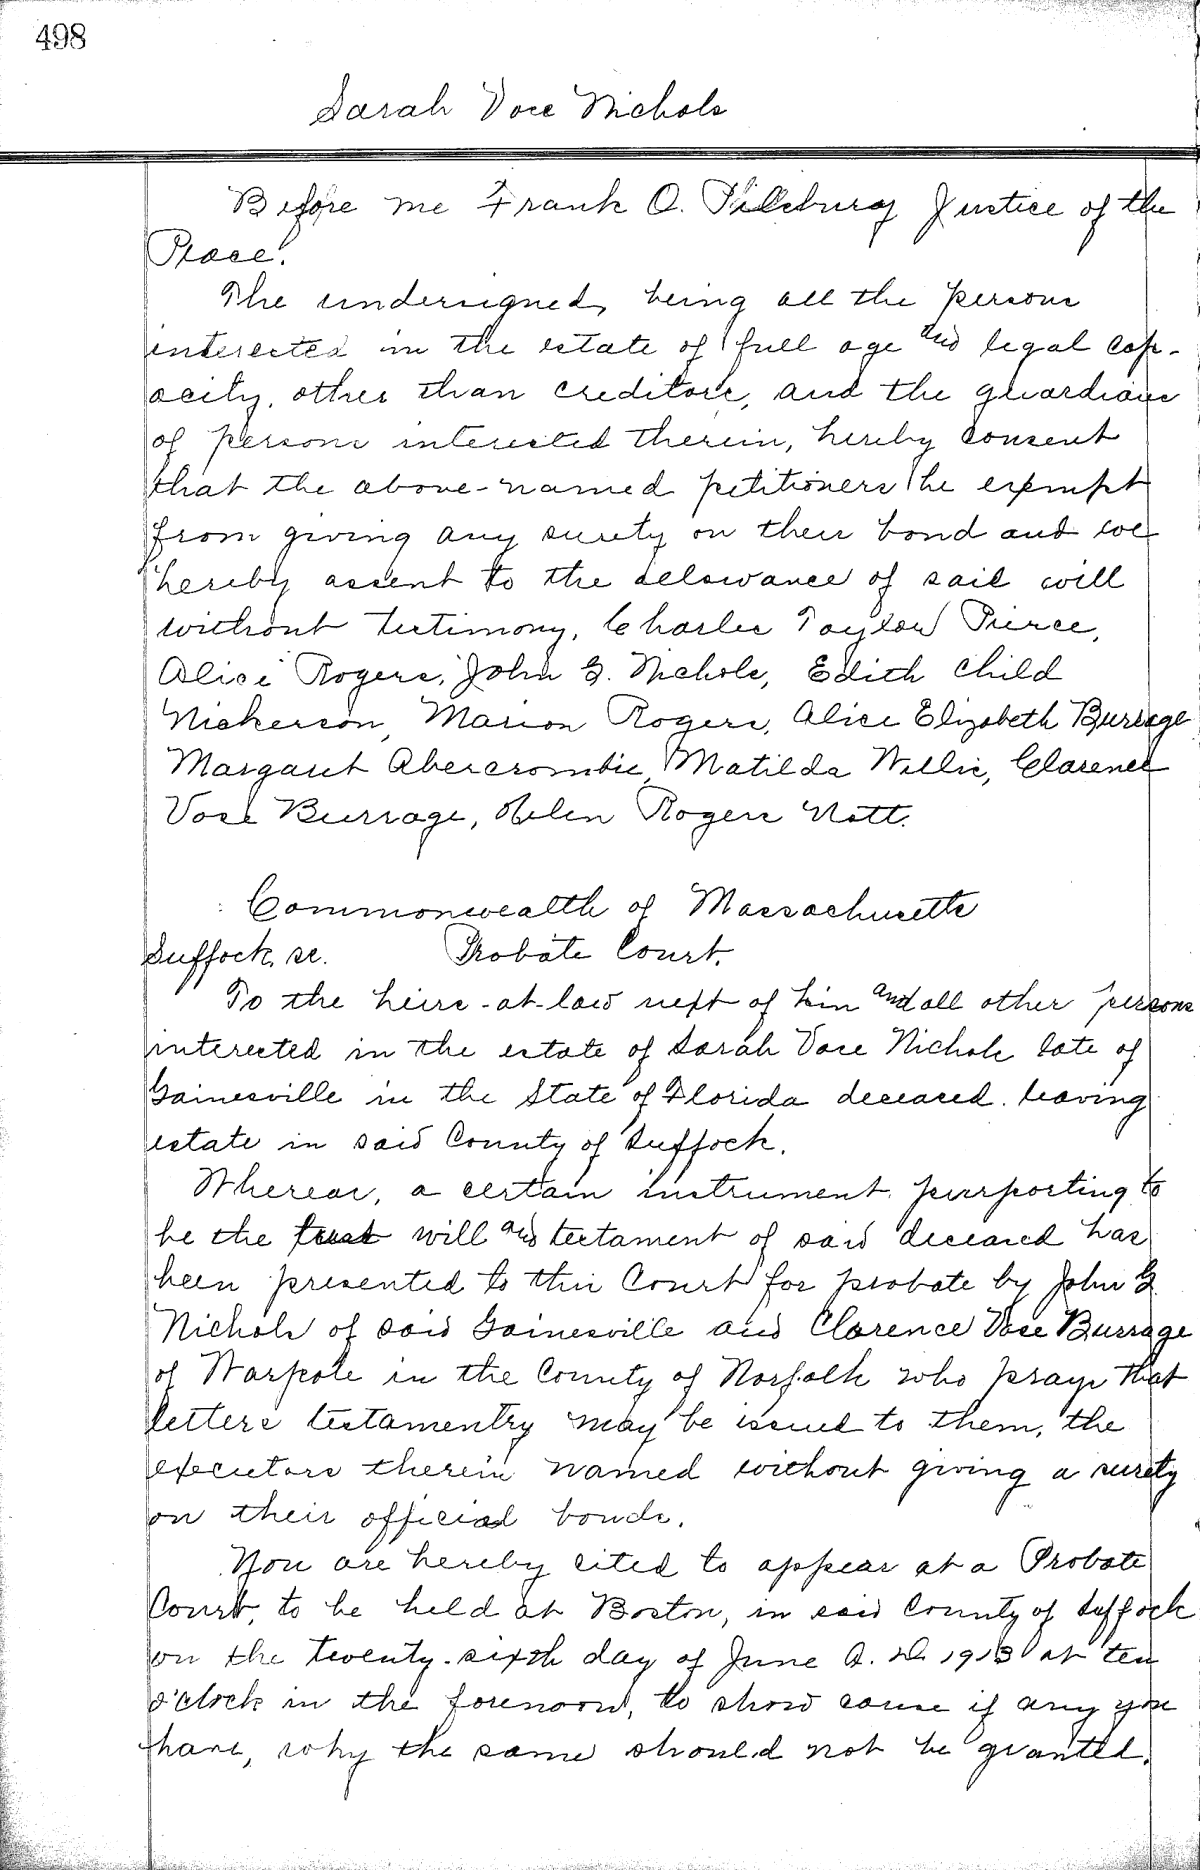 498
Sarah Vose Nichols
Before me Frank O. Pillsbury Justice of the
Peace.
The undersigned, being all the persons
interested in the estate of full age and legal cap-
acity, other than creditors, and the guardians
of persons interested therein, hereby consent
that the above-named petitioners be exempt
from giving any surety on their bond and we
hereby assent to the allowance of said will
without testimony. Charles Taylor Pierce,
Alice Rogers, John G. Nichols, Edith Child
Nickerson, Marion Rogers, Alice Elizabeth Burrage
Margaret Abercrombie, Matilda Willis, Clarence
Vose Burrage, Helen Rogers Nott.
Commonwealth of Massachusetts
Suffock, ss. Probate Court.
To the heirs-at-law next of kin and all other persons
interested in the estate of Sarah Vose Nichols late of
Gainesville in the State of Florida deceased. leaving
estate in said County of Suffock.
Whereas, a certain instrument purporting to
be the will and testament of said deceased has
been presented to this Court for probate by John G
Nichols of said Gainesville and Clarence Vose Burrage
of Warpole in the County of Norfolk who prays that
letters testamentry may be issued to them, the
executors therein named without giving a surety
on their official bonds.
You are hereby cited to appear at a Probate
Court, to be held at Boston, in said County of Suffock
on the twenty-sixth day of June A. D. 1913 at ten
o'clock in the forenoon, to show cause if any you
have, why the same should not be granted.